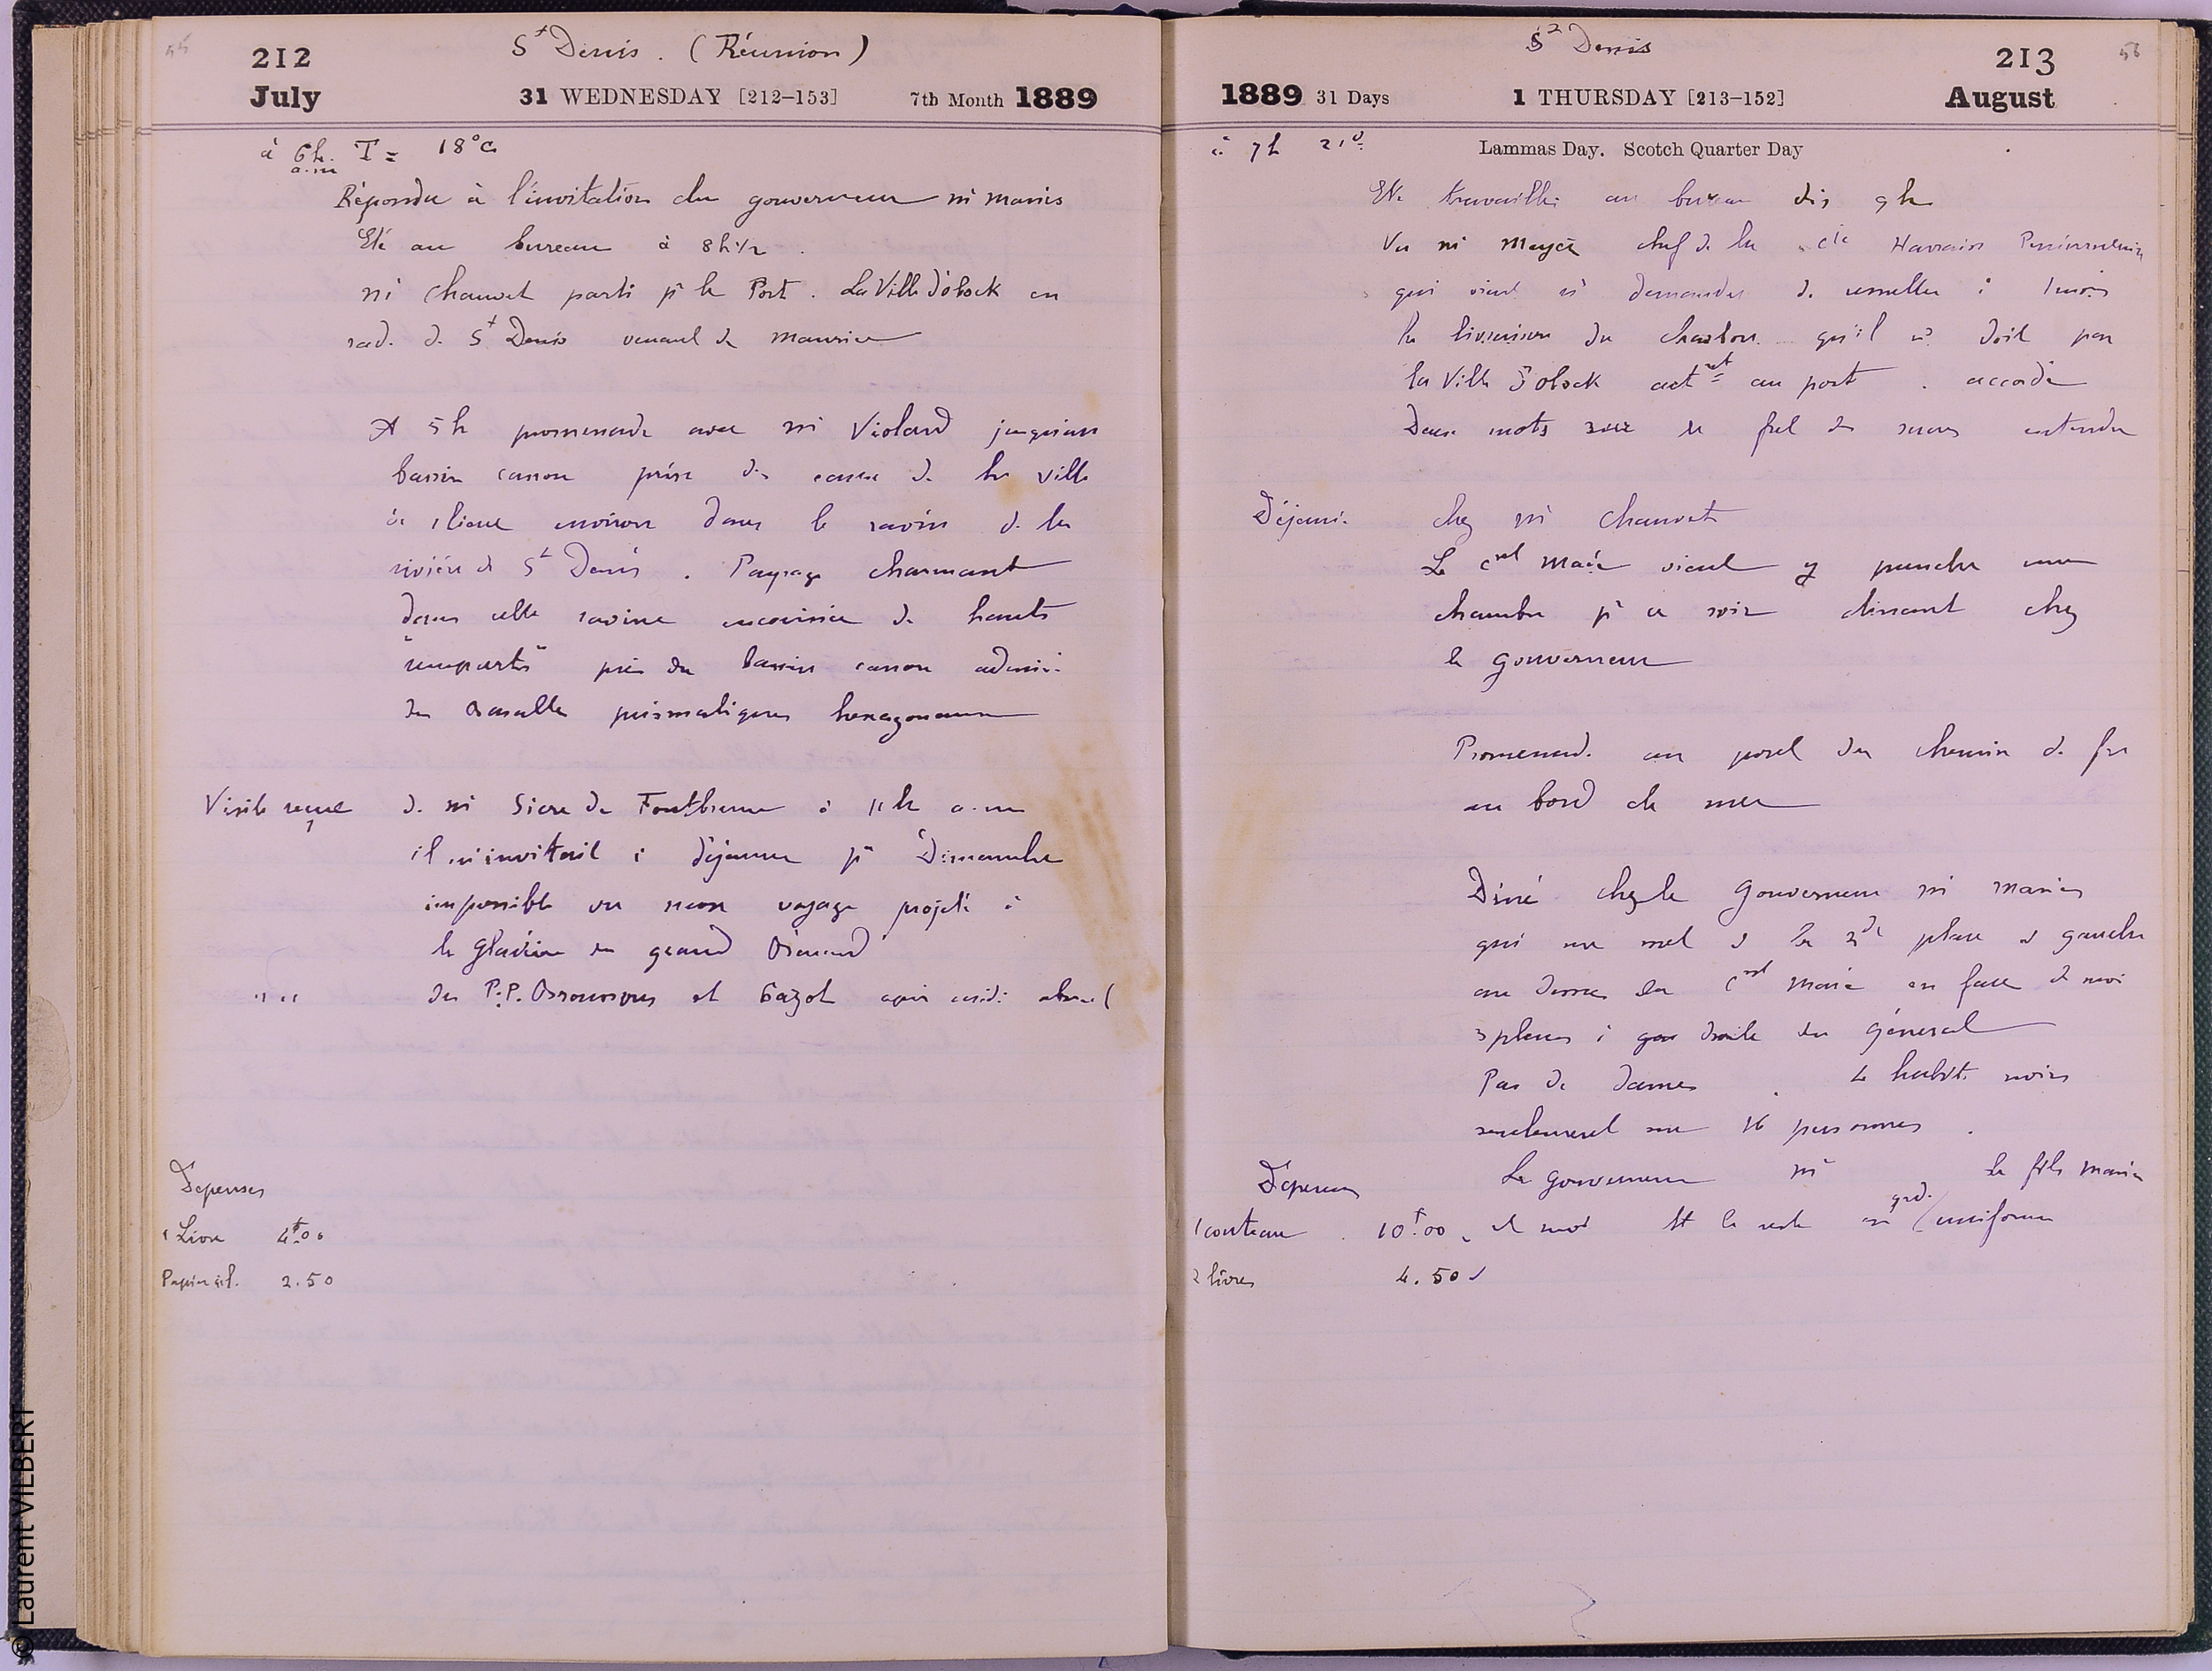 55
212
St Denis. (Réunion)
July
31 WEDNESDAY [212–153]
7th Month 1889
à 6h. T = 18°C
a.m
Répondu à l'invitation du gouverneur mr Manès
Eté au bureau à 8h1/2.
mr Chauvet parti pr le Port. La Ville d'obock en
rade de St Denis venant de Maurice
A 5h promenade avec mr Violard jusqu'au
bassin canon prise des eaux de la ville
à 1 lieue environ dans le ravin de la
rivière de St Denis. Paysage charmant
dans cette ravine encaissée de hauts
"remparts" près du bassin canon admiré
des Basaltes prismatiques hexagonaux
Visite reçue de mr Sicre de Fontbrune à 11h a.m
il m'invitait à déjeuner pr Dimanche
impossible vu mon voyage projeté à
la Glacière du grand Bénard
" " des P.P. et Gazot après midi absent
Dépenses
1 Livre 4f.00
Papier à l. 2.50
St Denis
213
56
1889 31 Days
1 THURSDAY [213–152]
August
à 7h 21°
Lammas Day. Scotch Quarter Day
Eté travailler au bureau dès 9h
Vu mr Mayer chef de la Cie Havraise Péninsulaire
qui vient demander de remettre à 1 mois
la livraison du charbon qu'il doit par
la Ville d'obock actnt au port. accordé
Deux mots sur le fret des sucres
Déjeuné chez mr Chauvet
Le vient y prendre une
chambre pr ce soir dinant chez
le gouverneur
Promenade au pont du chemin de fer
au bord de mer
Diné chez le Gouverneur mr Manès
qui me met à la 2de place à gauche
en face de moi
3 places à droite du général
Pas de dames. 4 habits noirs
seulement sur 16 personnes.
Le gouverneur mr le fils Manès
et moi et le reste en grd. uniforme
Dépenses
1 couteau. 10f.00
2 livres 4.50
© Laurent VILBERT